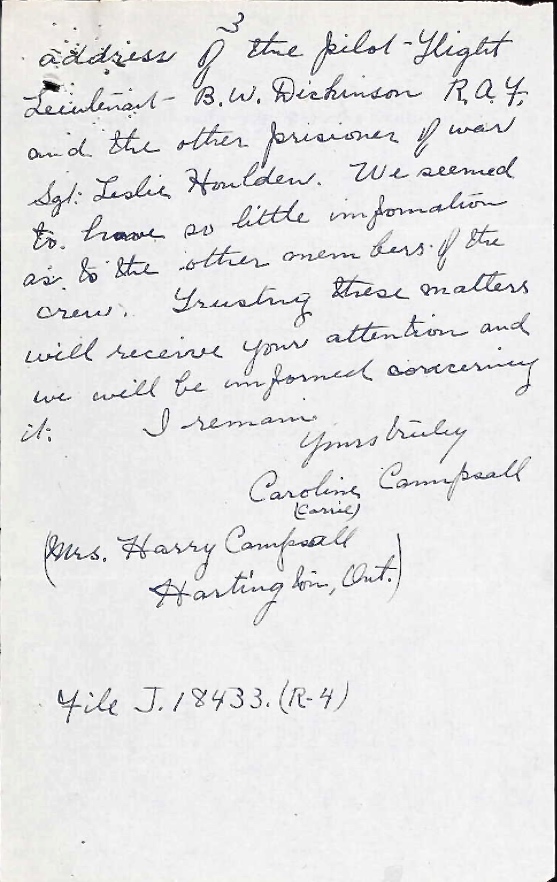 3
address of the pilot - Flight
Leiutenant - B.W. Dickinson R.A.F.
and the other prisioner of war
Sgt. Leslie Houlden. We seemed
to have so little information
as to the other members of the
crew. Trusting these matters
will receive your attention and
we will be informed concerning
it. I remain
Yours truley
Caroline Campsall
(Carrie)
(Mrs. Harry Campsall
Hartington, Ont.)
File J.18433.(R-4)